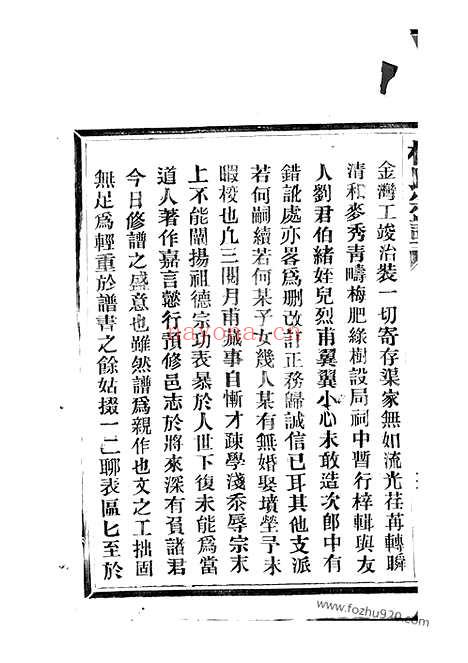 金灣工竣治裝一切寄存渠家無如流光荏苒轉瞬
清和麥秀青疇梅肥綠樹設局祠中暫行梓輯與友
人劉君伯緒姪兒烈甫翼翼小心未敢造次郎中有
錯訛處亦畧為刪改訂正務歸誠信已耳其他支派
若何嗣續若何某子女幾人某有無婚娶墳塋予未
暇校也凡三閱月甫蕆事自慚才疎學淺忝辱宗末
上不能闡揚祖德宗功表暴於人世下復未能為當
道人著作嘉言懿行預修邑志於將來深有負諸君
今日修譜之盛意也雖然譜為親作也文之工拙固
無足為輕重於譜書之餘姑掇一二聊表區匕至於
nayona.cn
www.fozhu920.com